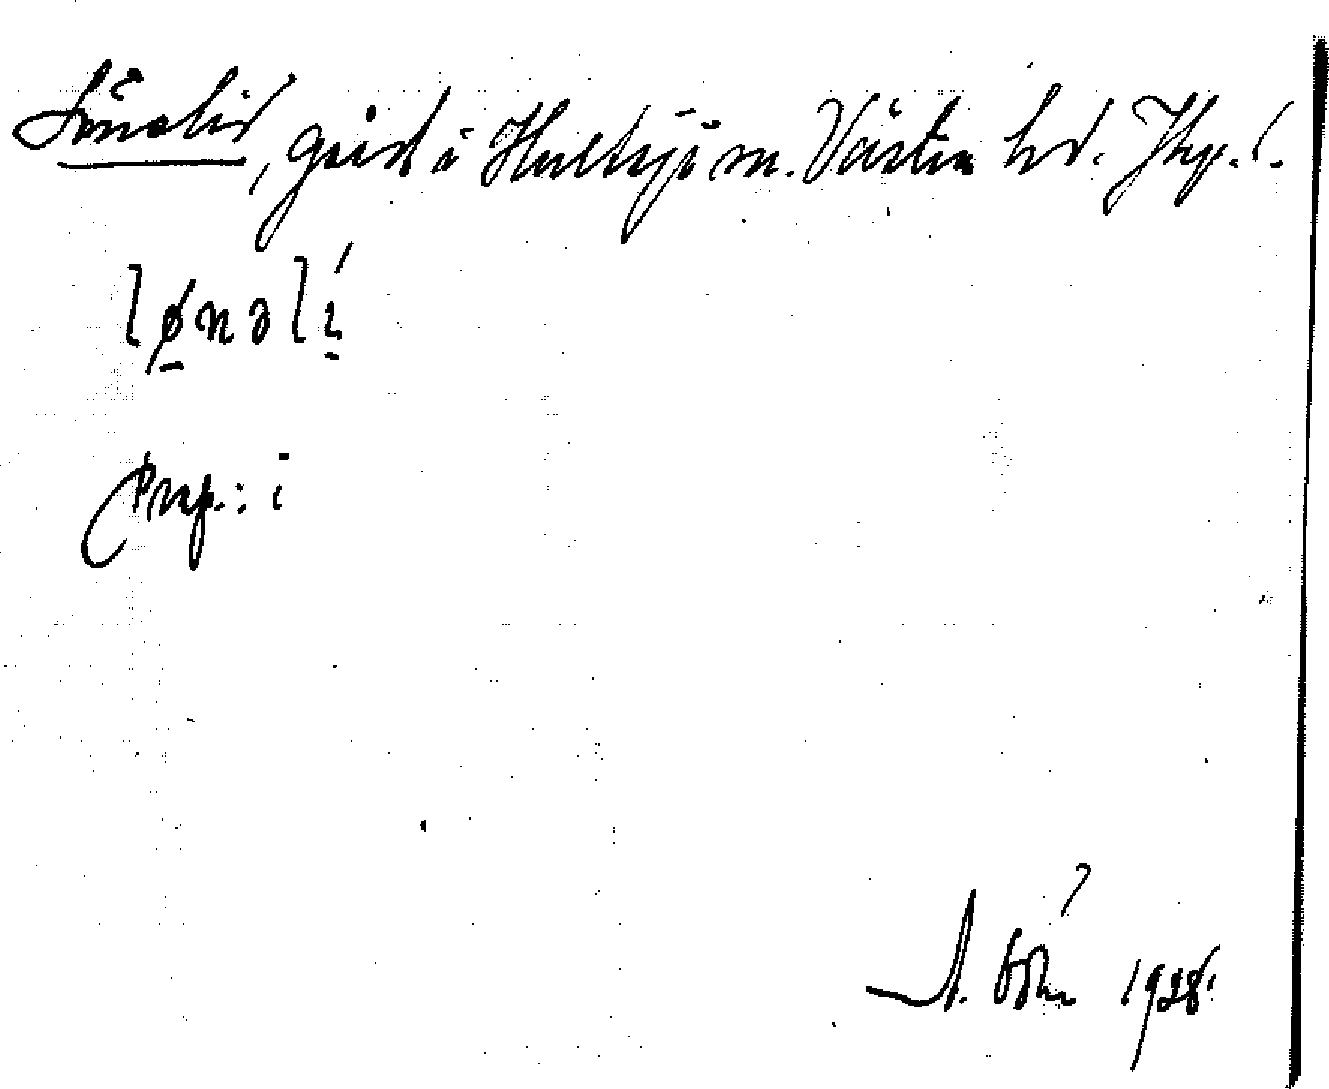 Lönelid, gård i Hultsjö sn. Västra hd. Jkp. l.
lønəlí
Prep.: i
1928.